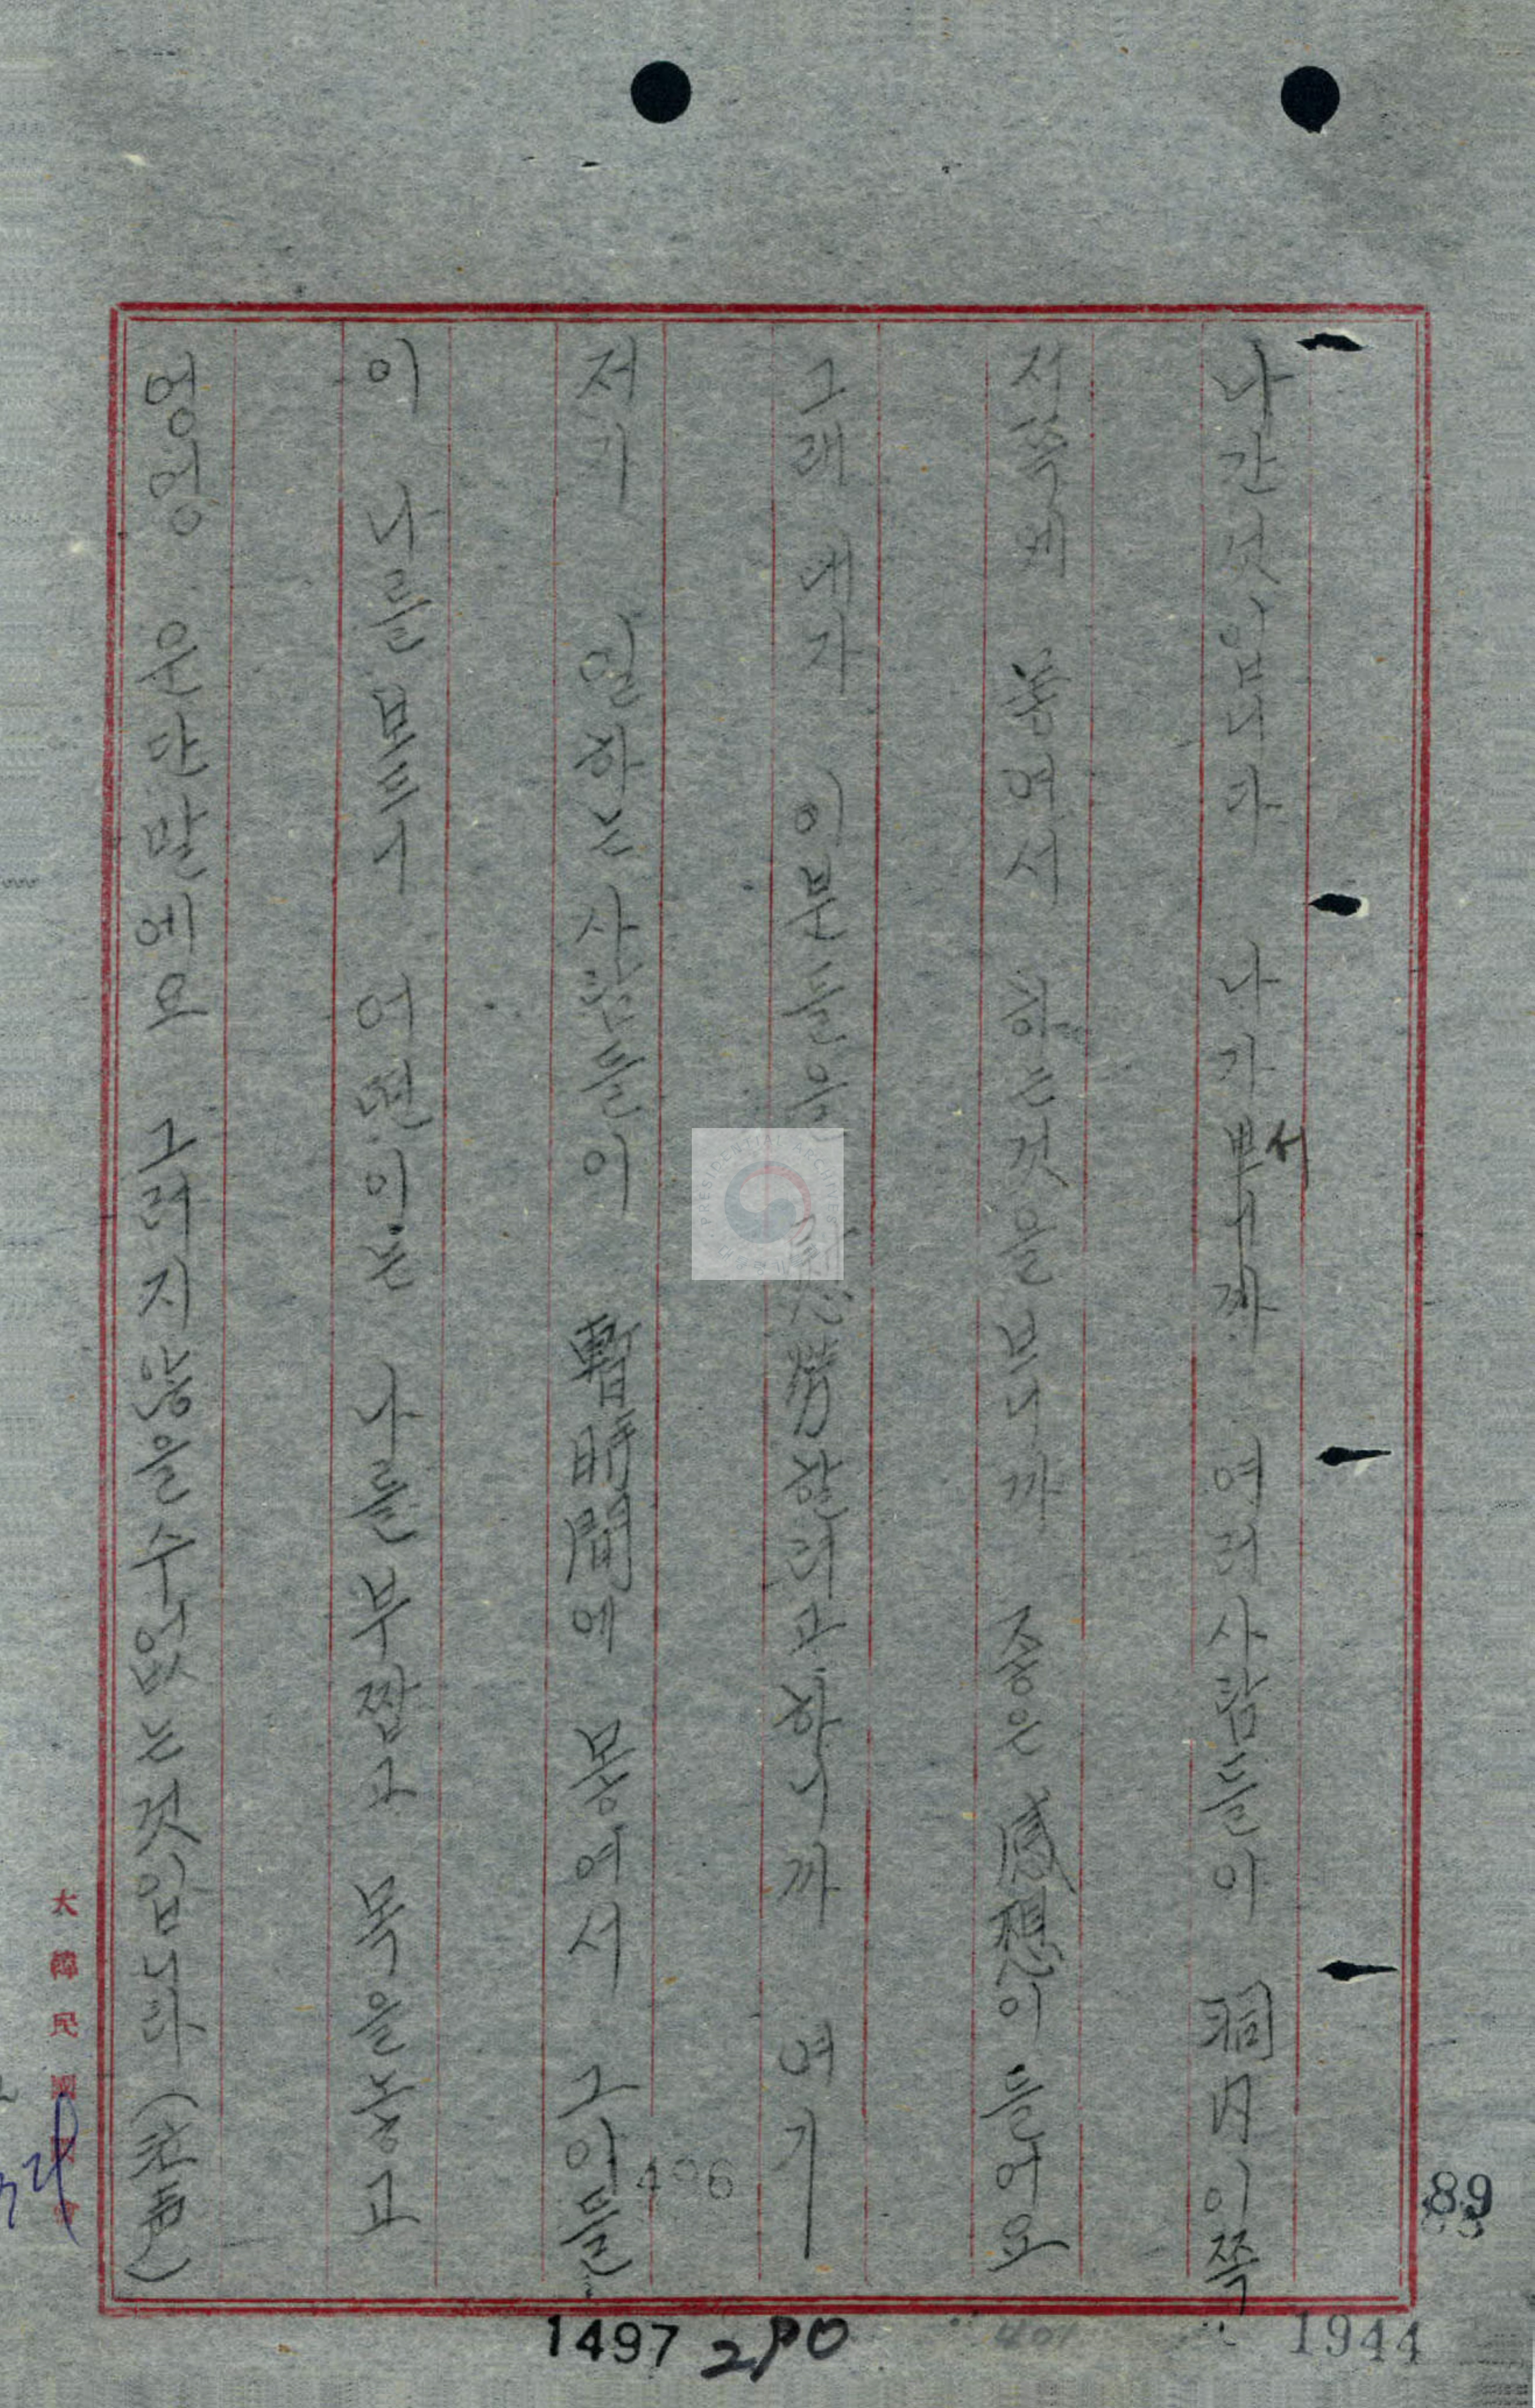 나간것입니다 나가보니까 서 여러사람들이 洞內이쪽
저쪽에 흩어서 하는것을 보니까 좋은 感想이 들어요
그래 내가 이분들을 慰勞할려고하니까 여기
저기 일하는사람들이 暫時間에 몽여서 그이들
이 나를 보드니 어떤이는 나를 부짭고 목을놓고
엉엉 운단말예요 그러지않을수없는것입니다 (哭声)
大韓民國
89
496
1497
290
401
1944